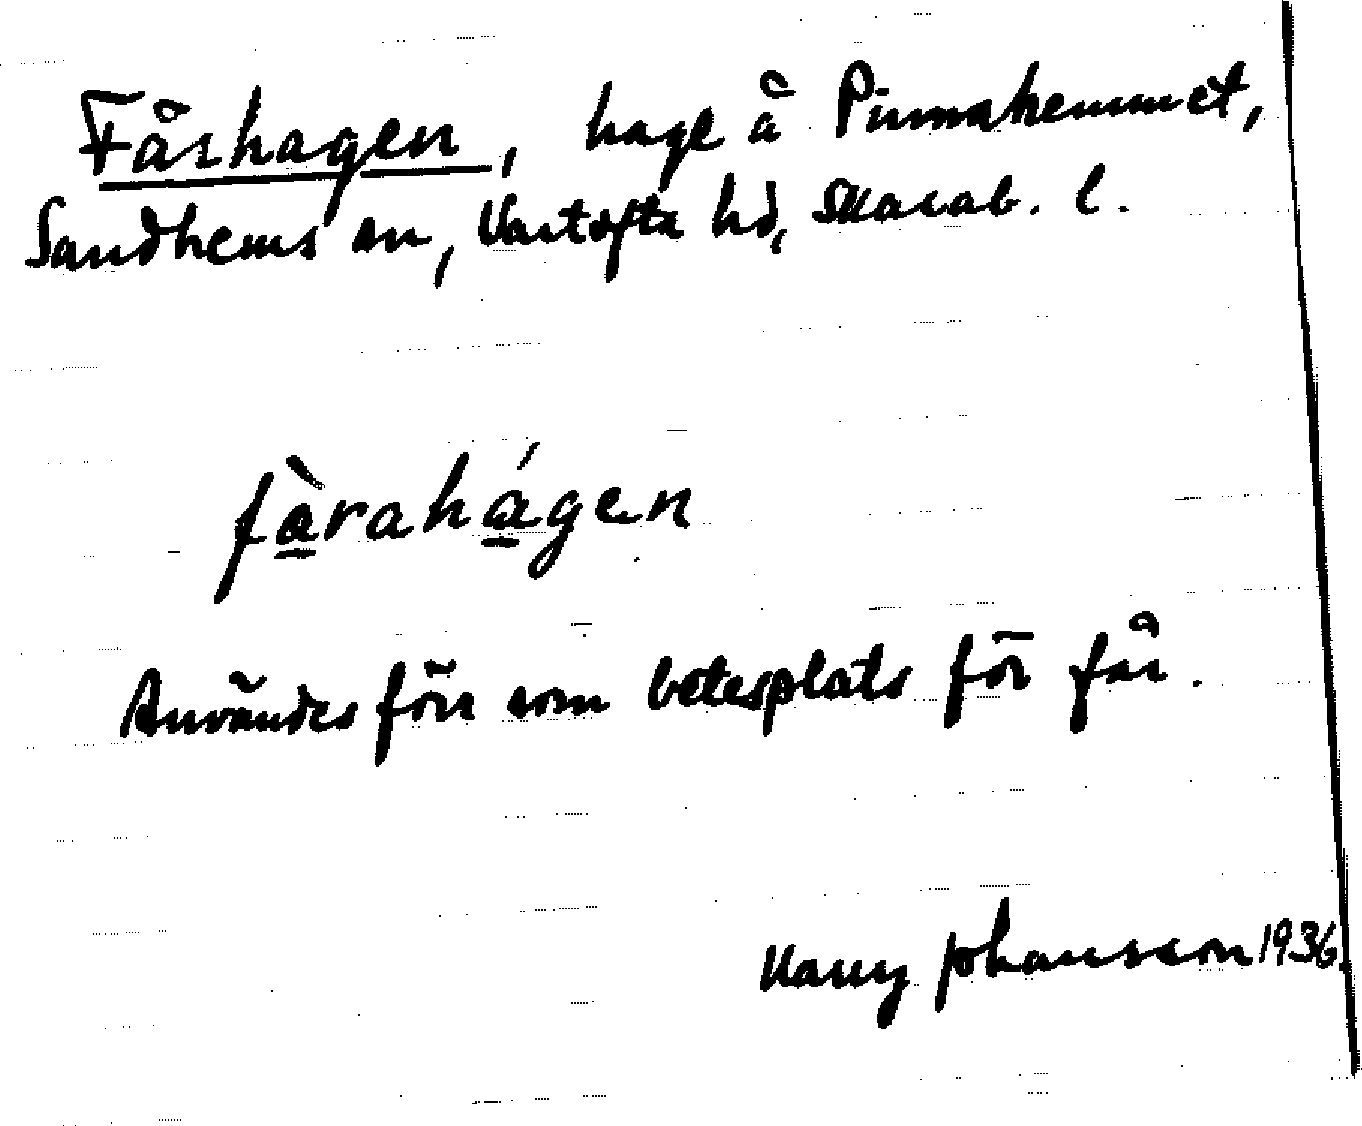 Fårhagen, hage å Pinnahemmet,
Sandhems sn, Vartofta hd, Skarab. l.
fàrahágen
Användes förr som betesplats för får.
Harry Johansson 1936.